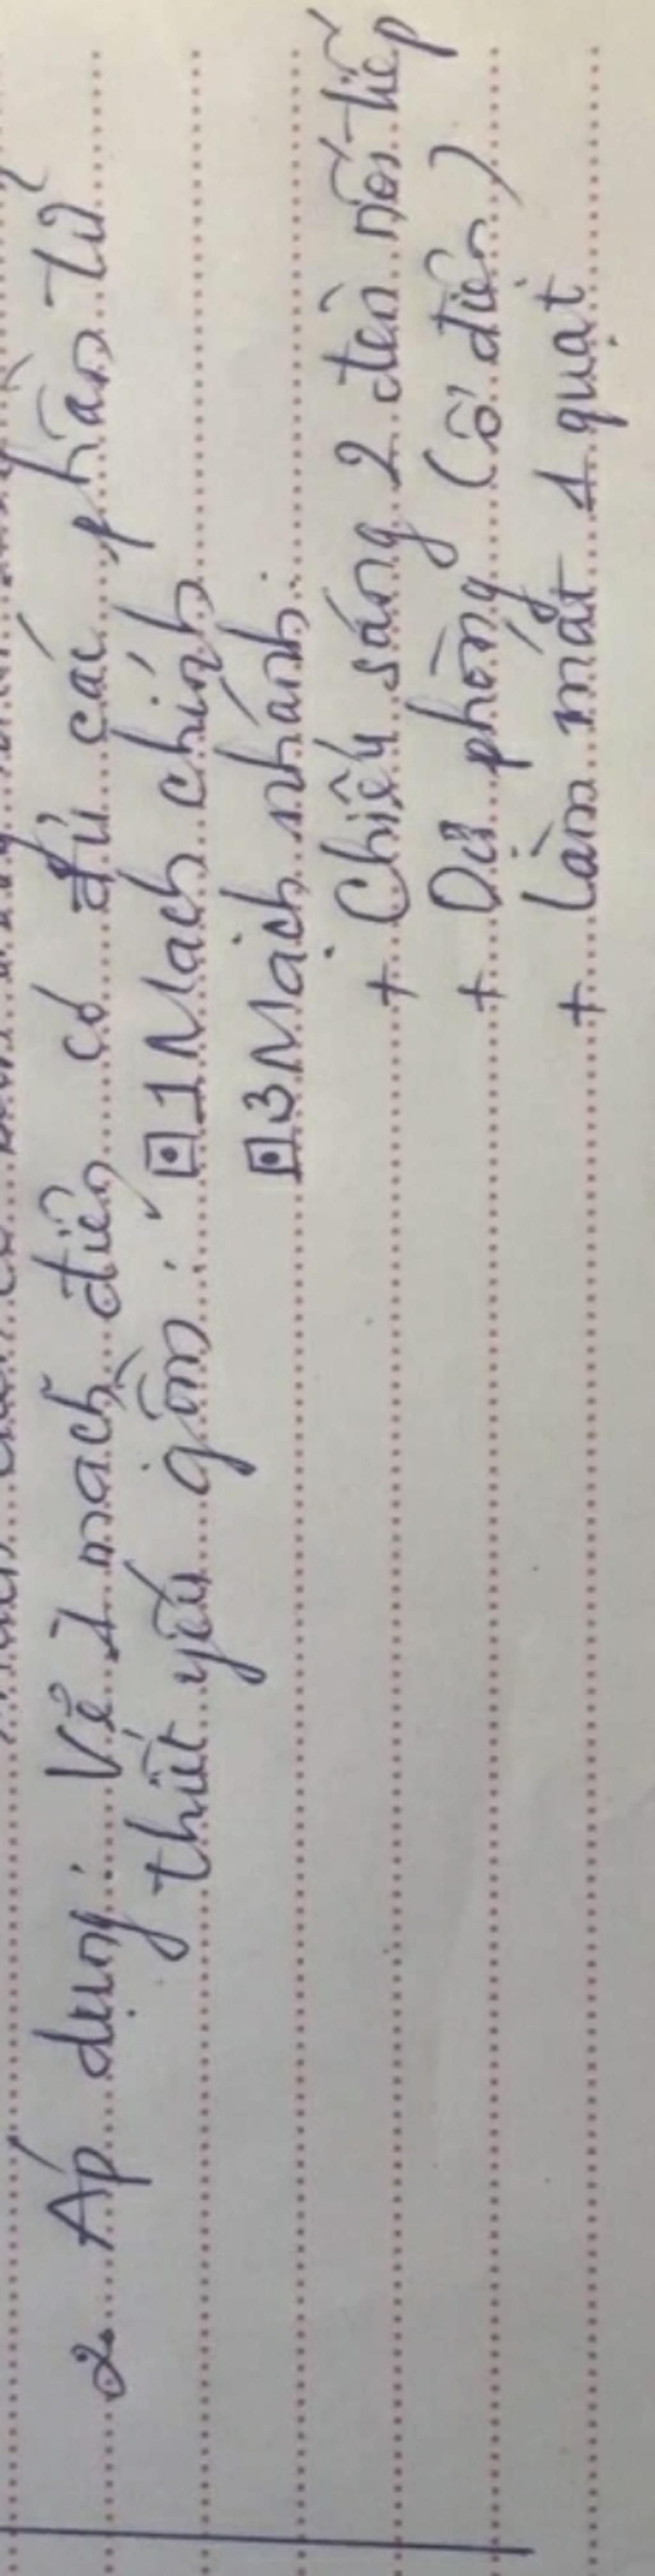 2. Áp dụng: Vẽ 1 mạch điện có đủ các phần tử
thiết yếu gồm: 1 Mạch chính
3 Mạch nhánh:
+ Chiếu sáng 2 đèn nối tiếp
+ Dự phòng (ổ điện)
+ Làm mát 1 quạt